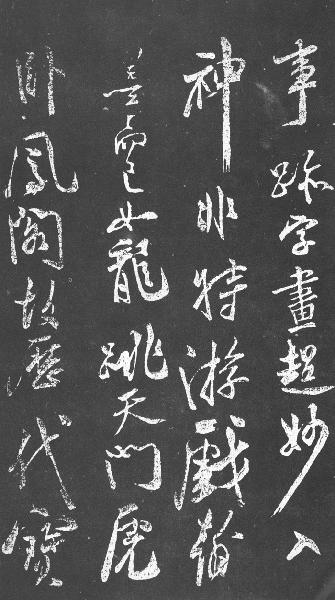 事跡字畫超妙入
神非特游戲翰
墨而已如龍跳天門虎
卧鳳閣故歷代寶